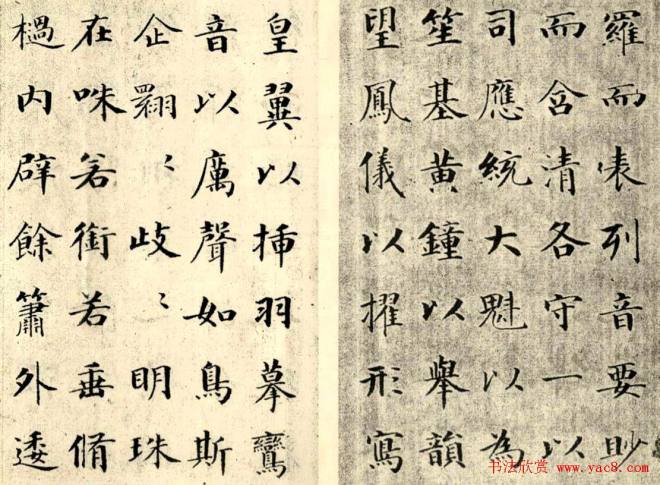 羅而表列音要眇
而含清各守一以
司應統大魁以為
笙基黄鐘以舉韻
望鳳儀以擢形寫
皇翼以插羽摹鸞
音以厲聲如鳥斯
企翾〻歧〻明珠
在咮若銜若垂脩
檛内辟餘簫外逶
书法欣赏 www.yac8.com